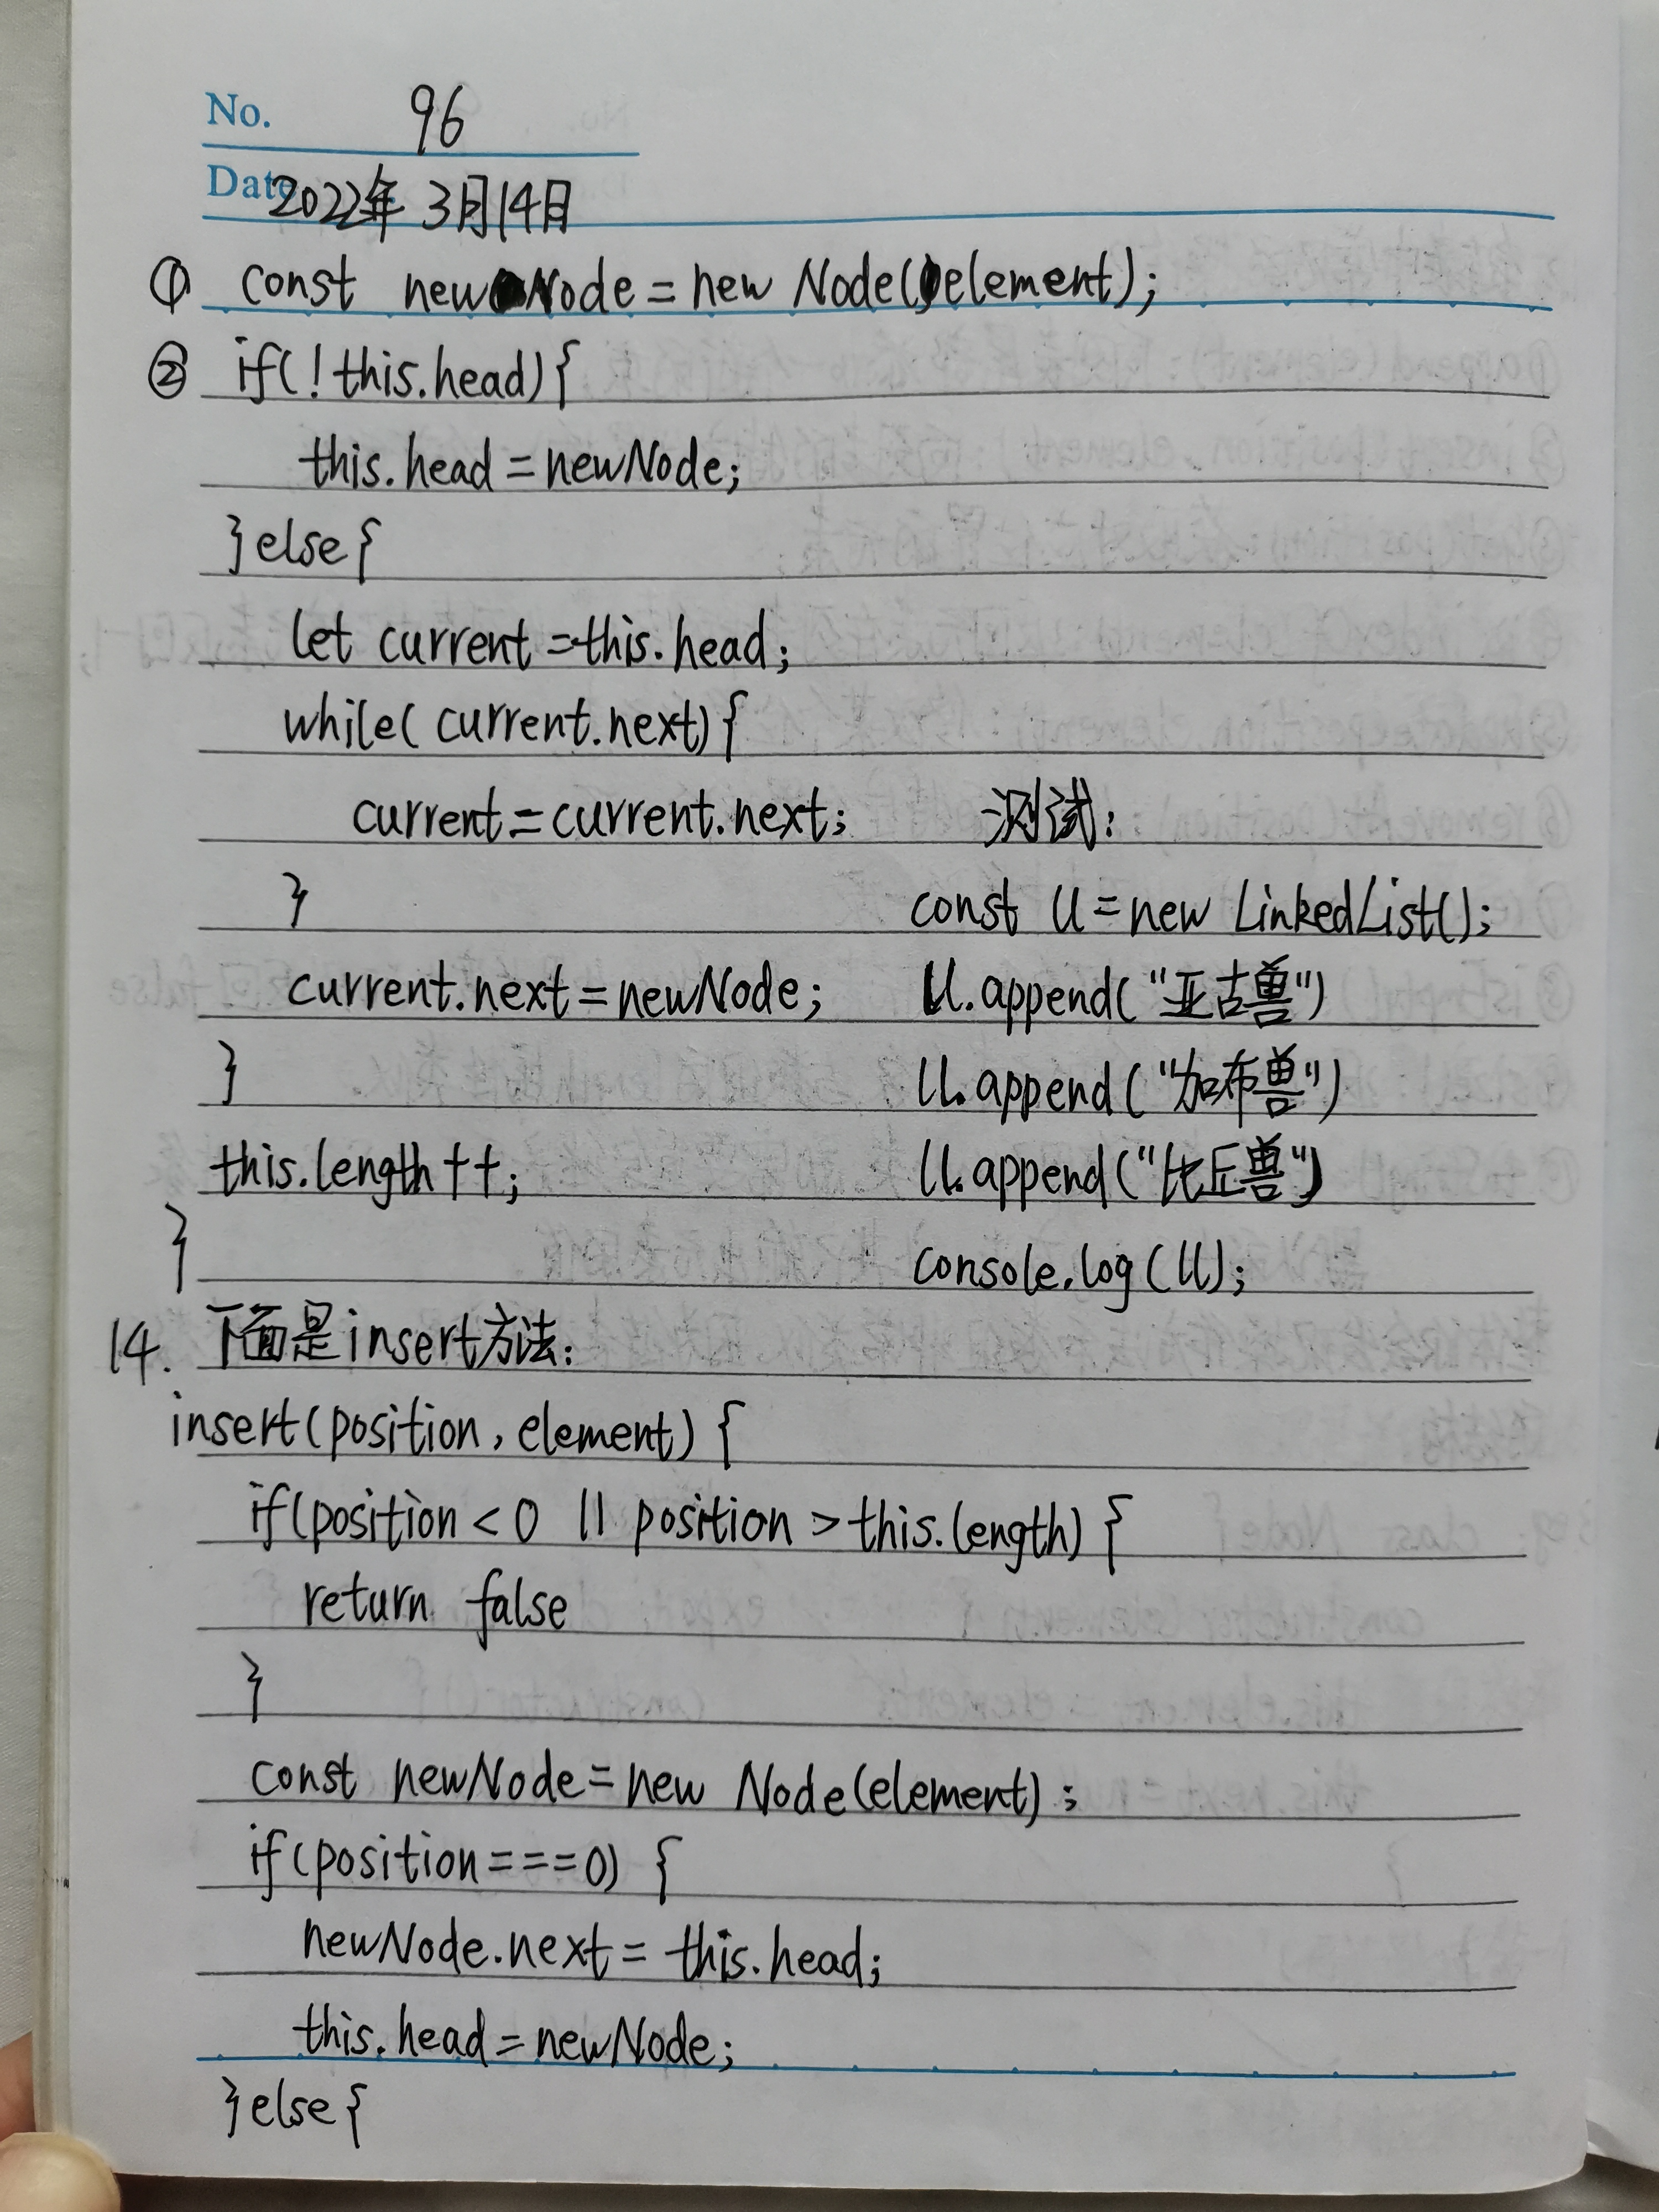 No. 96
Date 2022年3月14日
① const newNode = new Node(element);
② if(!this.head){
this.head = newNode;
}else{
let current = this.head;
while(current.next){
current = current.next;
}
current.next = newNode;
}
this.length++;
}
测试:
const ll = new LinkedList();
ll.append("亚古兽")
ll.append("加布兽")
ll.append("比丘兽")
console.log(ll);
14. 下面是insert方法:
insert(position, element) {
if(position < 0 || position > this.length) {
return false
}
const newNode = new Node(element);
if(position === 0) {
newNode.next = this.head;
this.head = newNode;
}else{